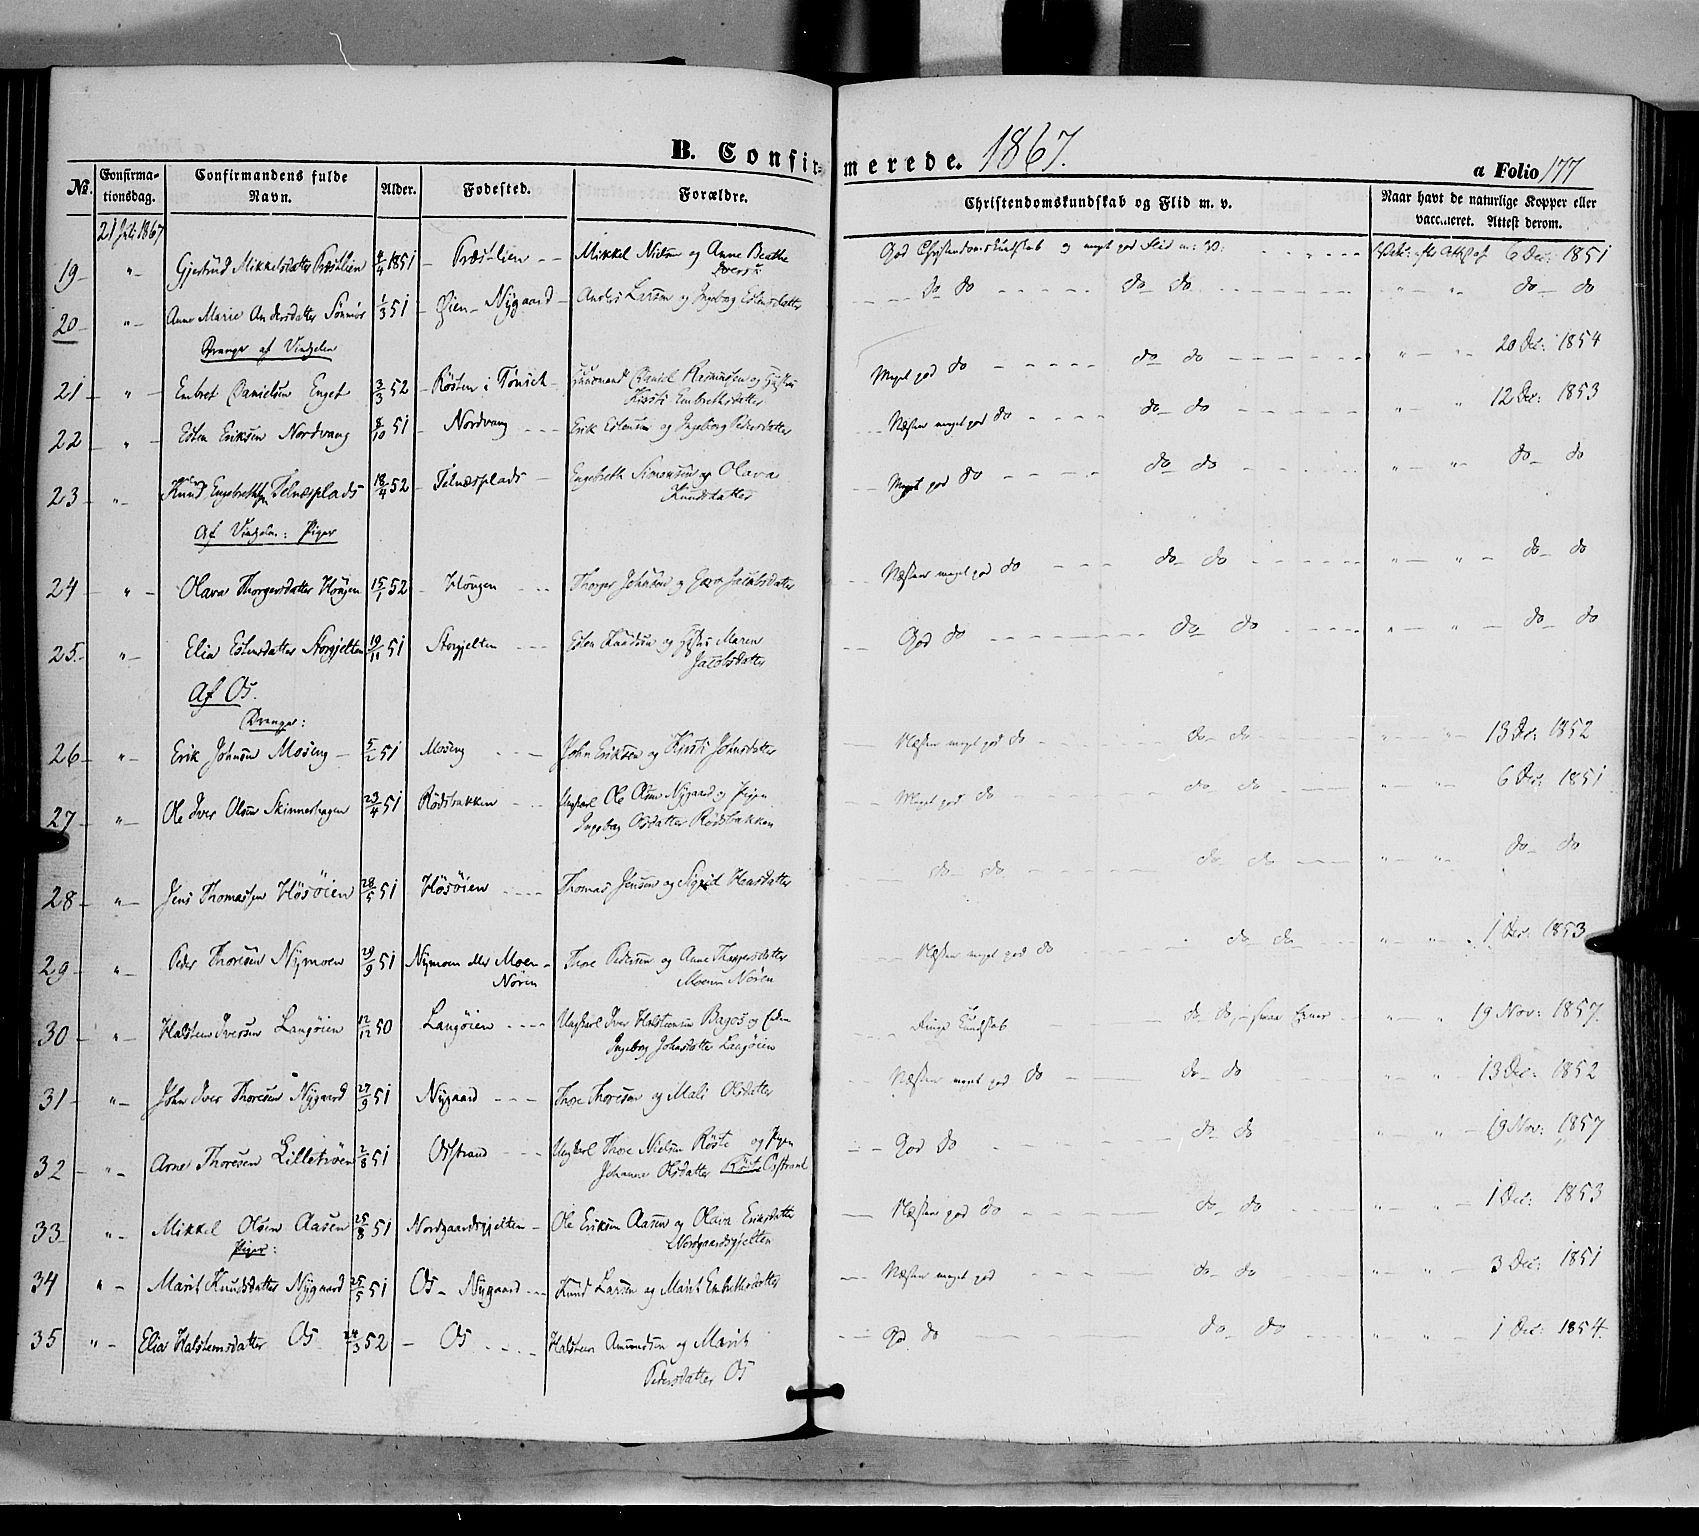 B. Confirmerede. 1867.
a Folio 177
No. Confirmationsdag. Confirmandens fulde Navn. Alder. Fødested. Forældre. Christendomskundskab og Flid m. v. Naar havt de naturlige Kopper eller vaccineret. Attest derom.
21 Juli 1867
19 " Gjertrud Mikkelsdatter Præstlien 1851 Præstlien Mikkel Nielsen og Anne Beathe God Christendomskundskab og meget god Flid 6 Dec: 1851
Iversd:
20 " Anne Marie Andersdatter Sönmör 1/3 51 Øien Nygaard Anders Larsen og Ingeborg Estensdatter do do do do " " do do
Drenge af Vingelen
21 " Embret Danielsen Enget 3/3 52 Røsten i Tönset Daniel Rasmussen og Hustru Meget god do do do " " 20 Dec: 1854
Kirsti Embretsdatter
22 " Esten Eriksen Nordvang 8/10 51 Nordvang Erik Estensen og Ingeborg Pedersdatter Næsten meget god do do do " " 12 Dec: 1853
23 " Knud Engebrethsen Telnæsplads 18/4 52 Telnæsplads Engebreth Simensen og Olava Meget god do do do " " do do
Knudsdatter
Af Vingelen: Piger
24 " Olava Thorgersdatter Höugen 15/1 52 Höugen Thorger Johnsen og Jacobsdatter Næsten meget god do do do " " do do
25 " Elia Estensdatter Storgjelten 19/11 51 Storgjelten Esten Knudsen og Hustru Maren God do do do " " do do
Jacobsdatter
Af Os.
Drenge:
26 " Erik Johnsen Moseng 5/2 51 Moseng John Eriksen og Kirsti Johnsdatter Næsten meget god do do do " " 13 Dec: 1852
27 " Ole Iver Olsen Skinnerhagen 23/4 51 Rödsbakken Ungkarl Ole Olsen Nygaard og Pigen Meget god do do do " " 6 Dec: 1851
Ingeborg Olsdatter Rödsbakken
28 " Jens Thomassen Hösöien 28/5 51 Hösöien Thomas Jensen og Sigrid do do do do " " do do
29 " Peder Thoresen Nymoen 29/9 51 Nymoen eller Moen Thore Pedersen og Anne Næsten meget god do do do " " 1 Dec: 1853
Nören Moen Nören
30 " Halsten Iversen Langöien 12/12 50 Langöien Ungkarl Iver Halstensen Bagos og Ringe Kundskab do do, svage Evner " " 19 Nov: 1857.
Ingeborg Johnsdatter Langöien
31 " John Iver Thoresen Nygaard 27/9 51 Nygaard Thore Thoresen og Mali Olsdatter Næsten meget god do do do " " 13 Dec: 1852
32 " Arne Thoresen Lilletröen 2/8 51 Osstrand Ungkarl Thore Nielsen Röste og Pigen God do do do " " 19 Nov: 1857
Johanne Olsdatter Röste Osstrand
33 " Mikkel Olsen Aasen 25/8 51 Nordgaardsgjelten Ole Eriksen Aasen og Olava Eriksdatter Næsten god do do do " " 1 Dec: 1853
Nordgaardsgjelten
Piger:
34 " Marit Knudsdatter Nygaard 25/5 51 Os Nygaard Knud Larsen og Marit Embretsdatter Næsten meget god do do " " 3 Dec: 1851
35 " Elia Halstensdatter Os 24/3 52 Os Halsten Amundsen og Marit God do do do " " 1 Dec: 1854
Pedersdatter Os